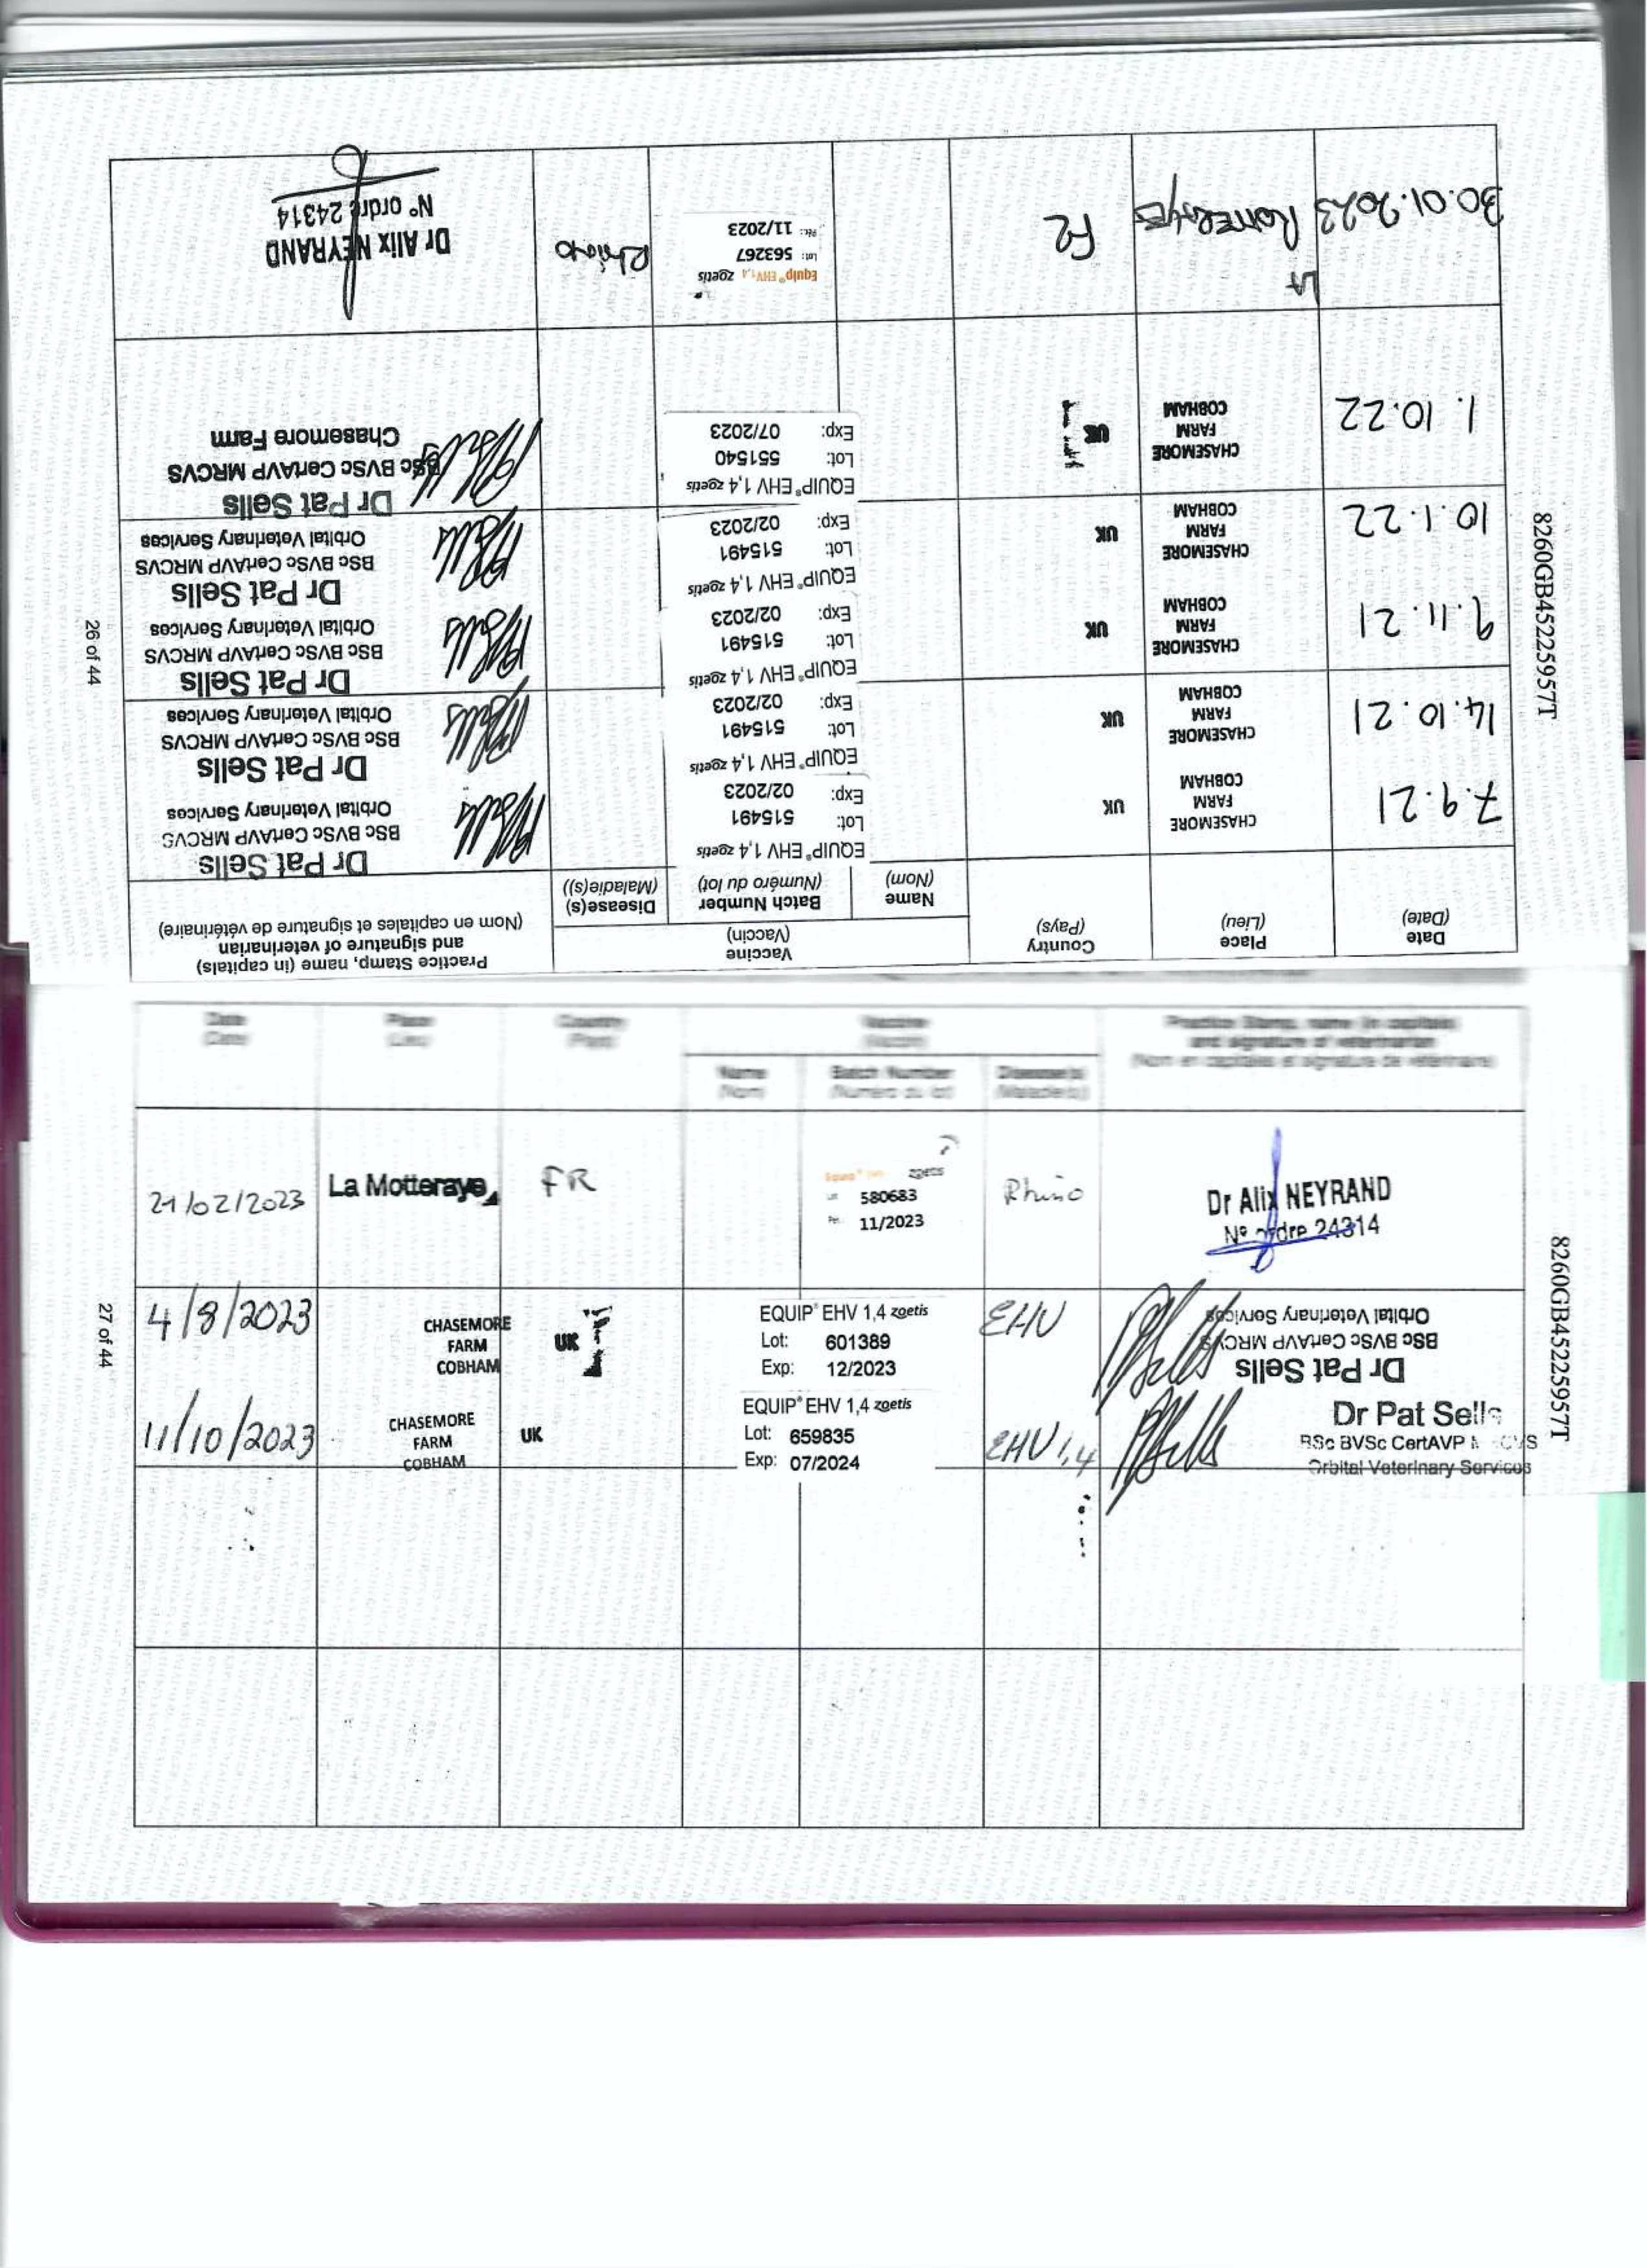 Date
(Date)
Place
(Lieu)
Country
(Pays)
Vaccine
(Vaccin)
Name
(Nom)
Batch Number
(Numéro du lot)
Disease(s)
(Maladie(s))
Practice Stamp, name (in capitals)
and signature of veterinarian
(Nom en capitales et signature de vétérinaire)
7.9.21
CHASEMORE
FARM
COBHAM
UK
EQUIP® EHV 1,4 zoetis
Lot: 515491
Exp: 02/2023
Dr Pat Sells
BSc BVSc CertAVP MRCVS
Orbital Veterinary Services
14.10.21
CHASEMORE
FARM
COBHAM
UK
EQUIP® EHV 1,4 zoetis
Lot: 515491
Exp: 02/2023
Dr Pat Sells
BSc BVSc CertAVP MRCVS
Orbital Veterinary Services
9.11.21
CHASEMORE
FARM
COBHAM
UK
EQUIP® EHV 1,4 zoetis
Lot: 515491
Exp: 02/2023
Dr Pat Sells
BSc BVSc CertAVP MRCVS
Orbital Veterinary Services
10.1.22
CHASEMORE
FARM
COBHAM
UK
EQUIP® EHV 1,4 zoetis
Lot: 515491
Exp: 02/2023
Dr Pat Sells
BSc BVSc CertAVP MRCVS
Orbital Veterinary Services
1.10.22
CHASEMORE
FARM
COBHAM
UK
EQUIP® EHV 1,4 zoetis
Lot: 551540
Exp: 07/2023
Dr Pat Sells
BSc BVSc CertAVP MRCVS
Chasemore Farm
30.01.2023
LA
FR
Equip® EHV 1,4 zoetis
Lot: 563267
Per.: 11/2023
Rhino
Dr Alix NEYRAND
N° ordre 24314
26 of 44
8260GB45225957T
Date
(Date)
Place
(Lieu)
Country
(Pays)
Vaccine
(Vaccin)
Name
(Nom)
Batch Number
(Numéro du lot)
Disease(s)
(Maladie(s))
Practice Stamp, name (in capitals)
and signature of veterinarian
(Nom en capitales et signature de vétérinaire)
21/02/2023
La Motteraye
FR
Equip® zoetis
580683
11/2023
Rhino
Dr Alix NEYRAND
N° ordre 24314
4/8/2023
CHASEMORE
FARM
COBHAM
UK
EQUIP® EHV 1,4 zoetis
Lot: 601389
Exp: 12/2023
EHV
Dr Pat Sells
BSc BVSc CertAVP MRCVS
Orbital Veterinary Services
11/10/2023
CHASEMORE
FARM
COBHAM
UK
EQUIP® EHV 1,4 zoetis
Lot: 659835
Exp: 07/2024
EHV 1,4
Dr Pat Sells
BSc BVSc CertAVP MRCVS
Orbital Veterinary Services
27 of 44
8260GB45225957T